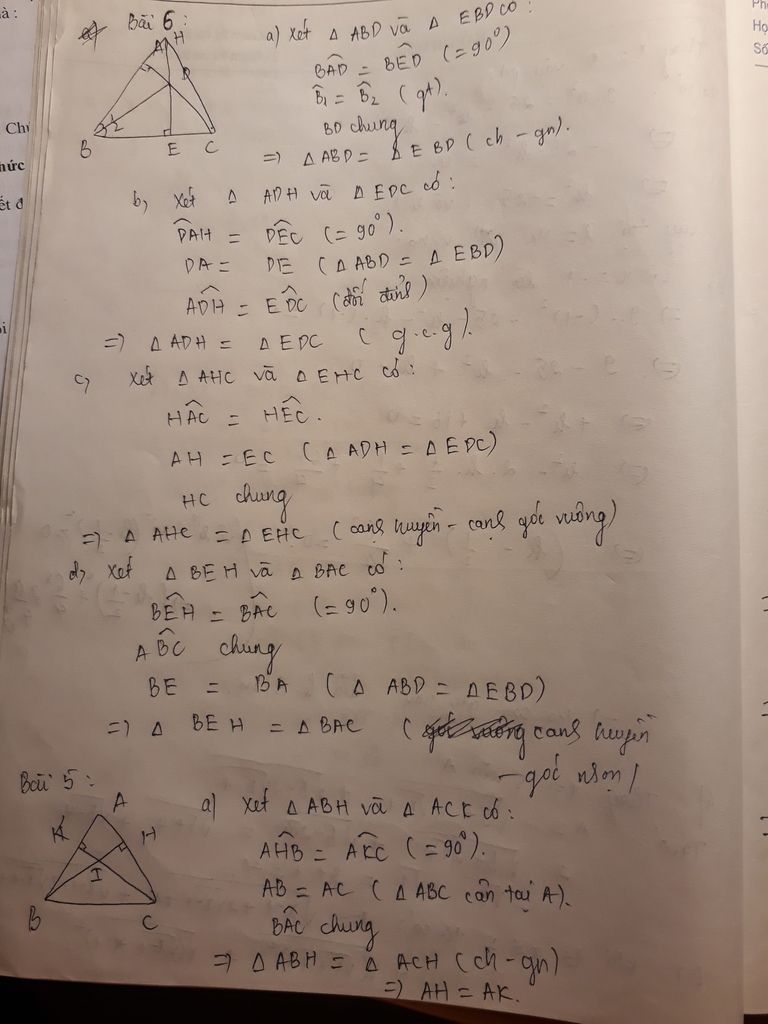 à :
Chứ
hức
ết đ
Bài 6 :
A H
D
B 1 2 E C
a) Xét △ ABD và △ EBD có :
BAD = BED (= 90°)
B1 = B2 (gt).
BD chung
=> △ ABD = △ EBD (ch - gn).
b, Xét △ ADH và △ EDC có :
DAH = DEC (= 90°).
DA = DE (△ ABD = △ EBD)
ADH = EDC (đối đỉnh)
=> △ ADH = △ EDC ( g.c.g).
c, Xét △ AHC và △ EHC có :
HAC = HEC.
AH = EC (△ ADH = △ EDC)
HC chung
=> △ AHC = △ EHC (cạnh huyền - cạnh góc vuông)
d, Xét △ BEH và △ BAC có :
BEH = BAC (= 90°).
ABC chung
BE = BA (△ ABD = △EBD)
=> △ BEH = △ BAC ( cạnh huyền
- góc nhọn)
Bài 5 :
A
K H
I
B C
a) Xét △ ABH và △ ACK có :
AHB = AKC (= 90°).
AB = AC (△ ABC cân tại A).
BAC chung
=> △ ABH = △ ACH (ch - gn)
=> AH = AK.
Họ
Số